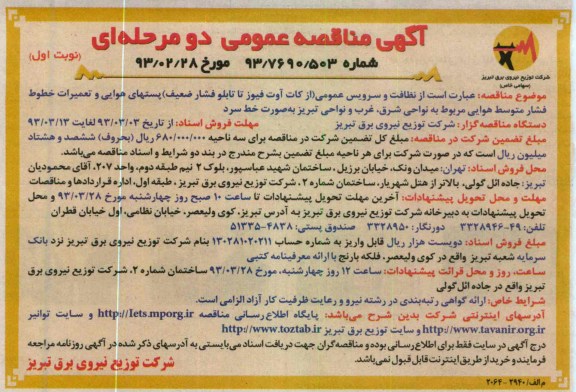 آگهی مناقصه عمومی دو مرحله‌ای
(نوبت اول)
شماره ۹۳/۷۶۹۰/۵۰۳ مورخ ۹۳/۰۲/۲۸
شرکت توزیع نیروی برق تبریز
(سهامی خاص)
موضوع مناقصه: عبارت است از نظافت و سرویس عمومی(از کات آوت فیوز تا تابلو فشار ضعیف)پستهای هوایی و تعمیرات خطوط
فشار متوسط هوایی مربوط به نواحی شرق، غرب و نواحی تبریز به‌صورت خط سرد
دستگاه مناقصه گزار: شرکت توزیع نیروی برق تبریز مهلت فروش اسناد: از تاریخ ۹۳/۰۳/۰۳ لغایت ۹۳/۰۳/۱۳
مبلغ تضمین شرکت در مناقصه: مبلغ کل تضمین شرکت در مناقصه برای سه ناحیه ۶۸۰/۰۰۰/۰۰۰ ریال (بحروف) ششصد و هشتاد
میلیون ریال است که در صورت شرکت برای هر ناحیه مبلغ تضمین بشرح مندرج در بند دو شرایط و اسناد مناقصه می‌باشد.
محل فروش اسناد: تهران: میدان ونک، خیابان برزیل، ساختمان شهید عباسپور، بلوک ۲ نیم طبقه دوم، واحد ۲۰۷، آقای محمودیان
تبریز: جاده ائل گولی، بالاتر از هتل شهریار، ساختمان شماره ۲، شرکت توزیع نیروی برق تبریز، طبقه اول، اداره قراردادها و مناقصات
مهلت و محل تحویل پیشنهادات: آخرین مهلت تحویل پیشنهادات تا ساعت ۱۰ صبح روز چهارشنبه مورخ ۹۳/۰۳/۲۸ و محل
تحویل پیشنهادات به دبیرخانه شرکت توزیع نیروی برق تبریز به آدرس تبریز، کوی ولیعصر، خیابان نظامی، اول خیابان قطران
تلفن: ۴۹-۳۳۲۸۹۴۶ دورنگار: ۳۳۲۸۹۵۰ صندوق پستی: ۴۸۳۸-۵۱۳۳۵
مبلغ فروش اسناد: دویست هزار ریال قابل واریز به شماره حساب ۱۳۰۲۸۱۰۲۰۲۱۱ بنام شرکت توزیع نیروی برق تبریز نزد بانک
سرمایه شعبه تبریز واقع در کوی ولیعصر، فلکه بارنج با ارائه معرفینامه کتبی
ساعت، روز و محل قرائت پیشنهادات: ساعت ۱۲ روز چهارشنبه، مورخ ۹۳/۰۳/۲۸ ساختمان شماره ۲، شرکت توزیع نیروی برق
تبریز واقع در جاده ائل گولی
شرایط خاص: ارائه گواهی رتبه‌بندی در رشته نیرو و رعایت ظرفیت کار آزاد الزامی است.
آدرسهای اینترنتی شرکت بدین شرح می‌باشد: پایگاه اطلاع رسانی مناقصه http://Iets.mporg.ir و سایت توانیر
http://www.tavanir.org.ir و سایت توزیع برق تبریز http://www.toztab.ir
درج آگهی در سایت فقط برای اطلاع رسانی بوده و مناقصه گران جهت دریافت اسناد می‌بایستی به آدرسهای ذکر شده در آگهی روزنامه مراجعه
فرمایند و خرید از طریق اینترنت قابل قبول نمی‌باشد.
شرکت توزیع نیروی برق تبریز
م الف/۲۹۴۰ - ۲۰۶۴